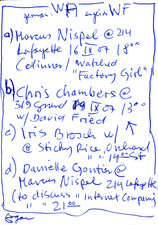 german WH english WF
a) Marcus Nispel @ 214
Lafayette 16 IX 07 18⁰⁰
watched
"Factory Girl"
b) Chris Chambers @
319 Grand 19 IX 07 13⁰⁰
w/ David Fried
c) Iris Brosch w/
@ Sticky Rice, Orchard
d) Danielle Gontier @
Marcus Nispel 214 Lafayette
(to discuss "Internet Company"
21⁰⁰